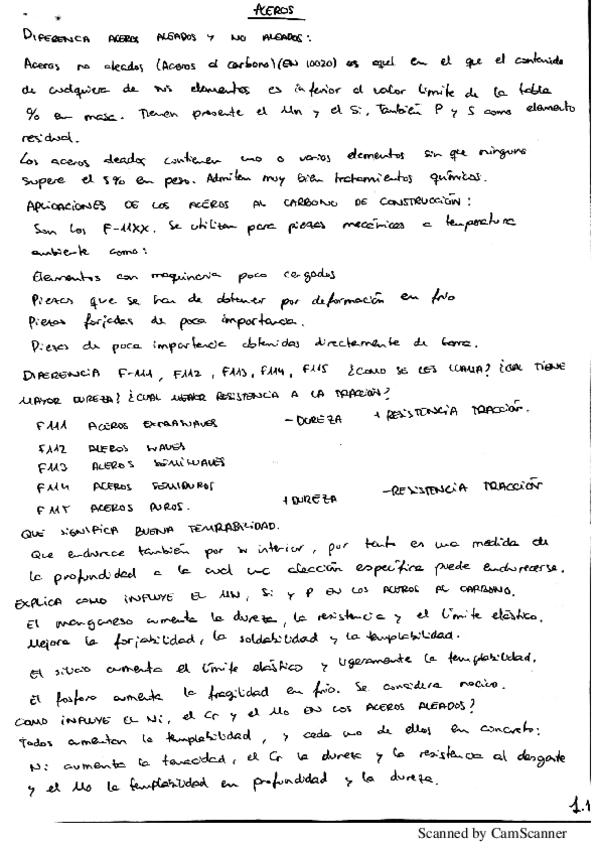 ACEROS
DIFERENCIA ACEROS ALEADOS Y NO ALEADOS:
Aceros no aleados (Aceros al carbono) (EN 10020) es aquel en el que el contenido
de cualquiera de sus elementos es inferior al valor límite de la tabla
% en masa. Tienen presente el Mn y el Si, también P y S como elemento
residual.
Los aceros aleados contienen uno o varios elementos sin que ninguno
supere el 5% en peso. Admiten muy bien tratamientos químicos.
APLICACIONES DE LOS ACEROS AL CARBONO DE CONSTRUCCIÓN:
Son los F-11XX. Se utilizan para piezas mecánicas a temperatura
ambiente como:
Elementos con maquinaria poco cargados
Piezas que se han de obtener por deformación en frio
Piezas forjadas de poca importancia.
Piezas de poca importancia obtenidas directamente de barra.
DIFERENCIA F-111, F112, F113, F114, F115 ¿COMO SE LES LLAMA? ¿CUAL TIENE
MAYOR DUREZA? ¿CUAL MENOR RESISTENCIA A LA TRACCIÓN?
F111 ACEROS EXTRASUAVES - DUREZA + RESISTENCIA TRACCIÓN.
F112 ACEROS SUAVES
F113 ACEROS SEMISUAVES
F114 ACEROS SEMIDUROS
F115 ACEROS DUROS. + DUREZA - RESISTENCIA TRACCIÓN
QUE SIGNIFICA BUENA TEMPLABILIDAD.
Que endurece también por su interior, por tanto es una medida de
la profundidad a la cual una aleación específica puede endurecerse.
EXPLICA COMO INFLUYE EL MN, Si y P EN LOS ACEROS AL CARBONO.
El manganeso aumenta la dureza, la resistencia y el límite elástico.
Mejora la forjabilidad, la soldabilidad y la templabilidad.
El silicio aumenta el límite elástico y ligeramente la templabilidad.
El fosforo aumenta la fragilidad en frio. Se considera nocivo.
COMO INFLUYE EL Ni, el Cr y el Mo EN LOS ACEROS ALEADOS?
Todos aumentan la templabilidad, y cada uno de ellos en concreto:
Ni aumenta la tenacidad, el Cr la dureza y la resistencia al desgaste
y el Mo la templabilidad en profundidad y la dureza.
1.1
Scanned by CamScanner